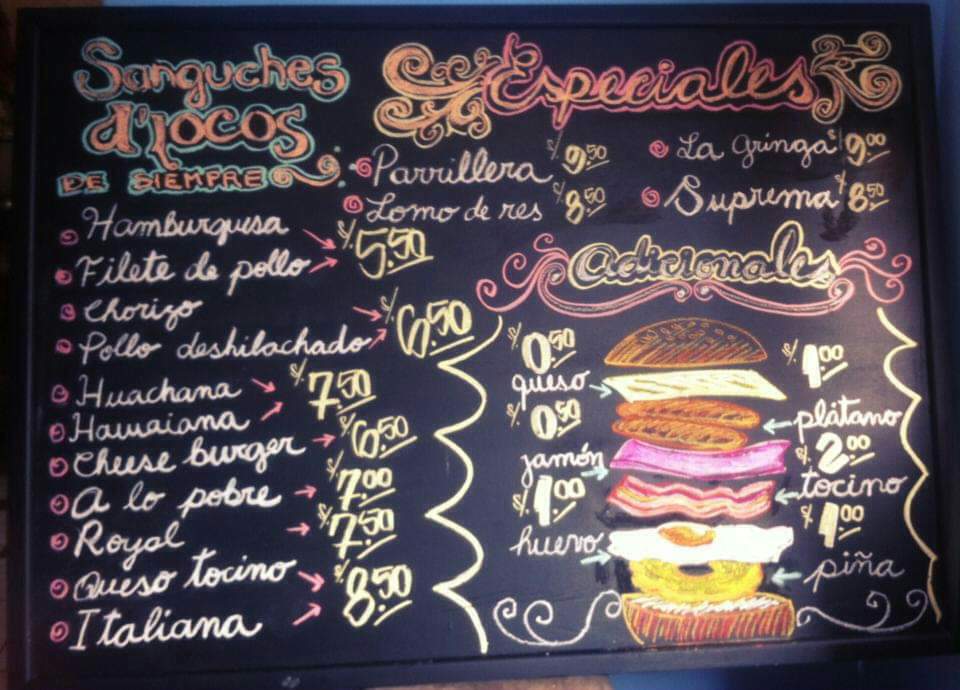 Sanguches
d'locos
DE SIEMPRE
Hamburguesa
Filete de pollo
S/. 5.50
Chorizo
Pollo deshilachado
S/. 6.50
Huachana
Hawaiana
S/. 7.50
Cheese burger S/. 6.50
A lo pobre S/. 7.00
Royal S/. 7.50
Queso tocino
Italiana
S/. 8.50
Especiales
Parrillera S/. 9.50
Lomo de res S/. 8.50
La gringa S/. 9.00
Suprema S/. 8.50
Adicionales
S/. 0.50
queso
S/. 0.50
jamón
S/. 1.00
huevo
S/. 1.00
plátano
S/. 2.00
tocino
S/. 1.00
piña